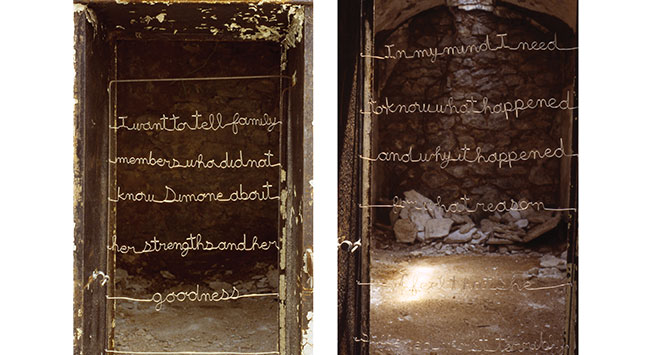 I want to tell family
members who did not
know Simone about
her strengths and her
goodness
In my mind I need
to know what happened
and why it happened
for what reason